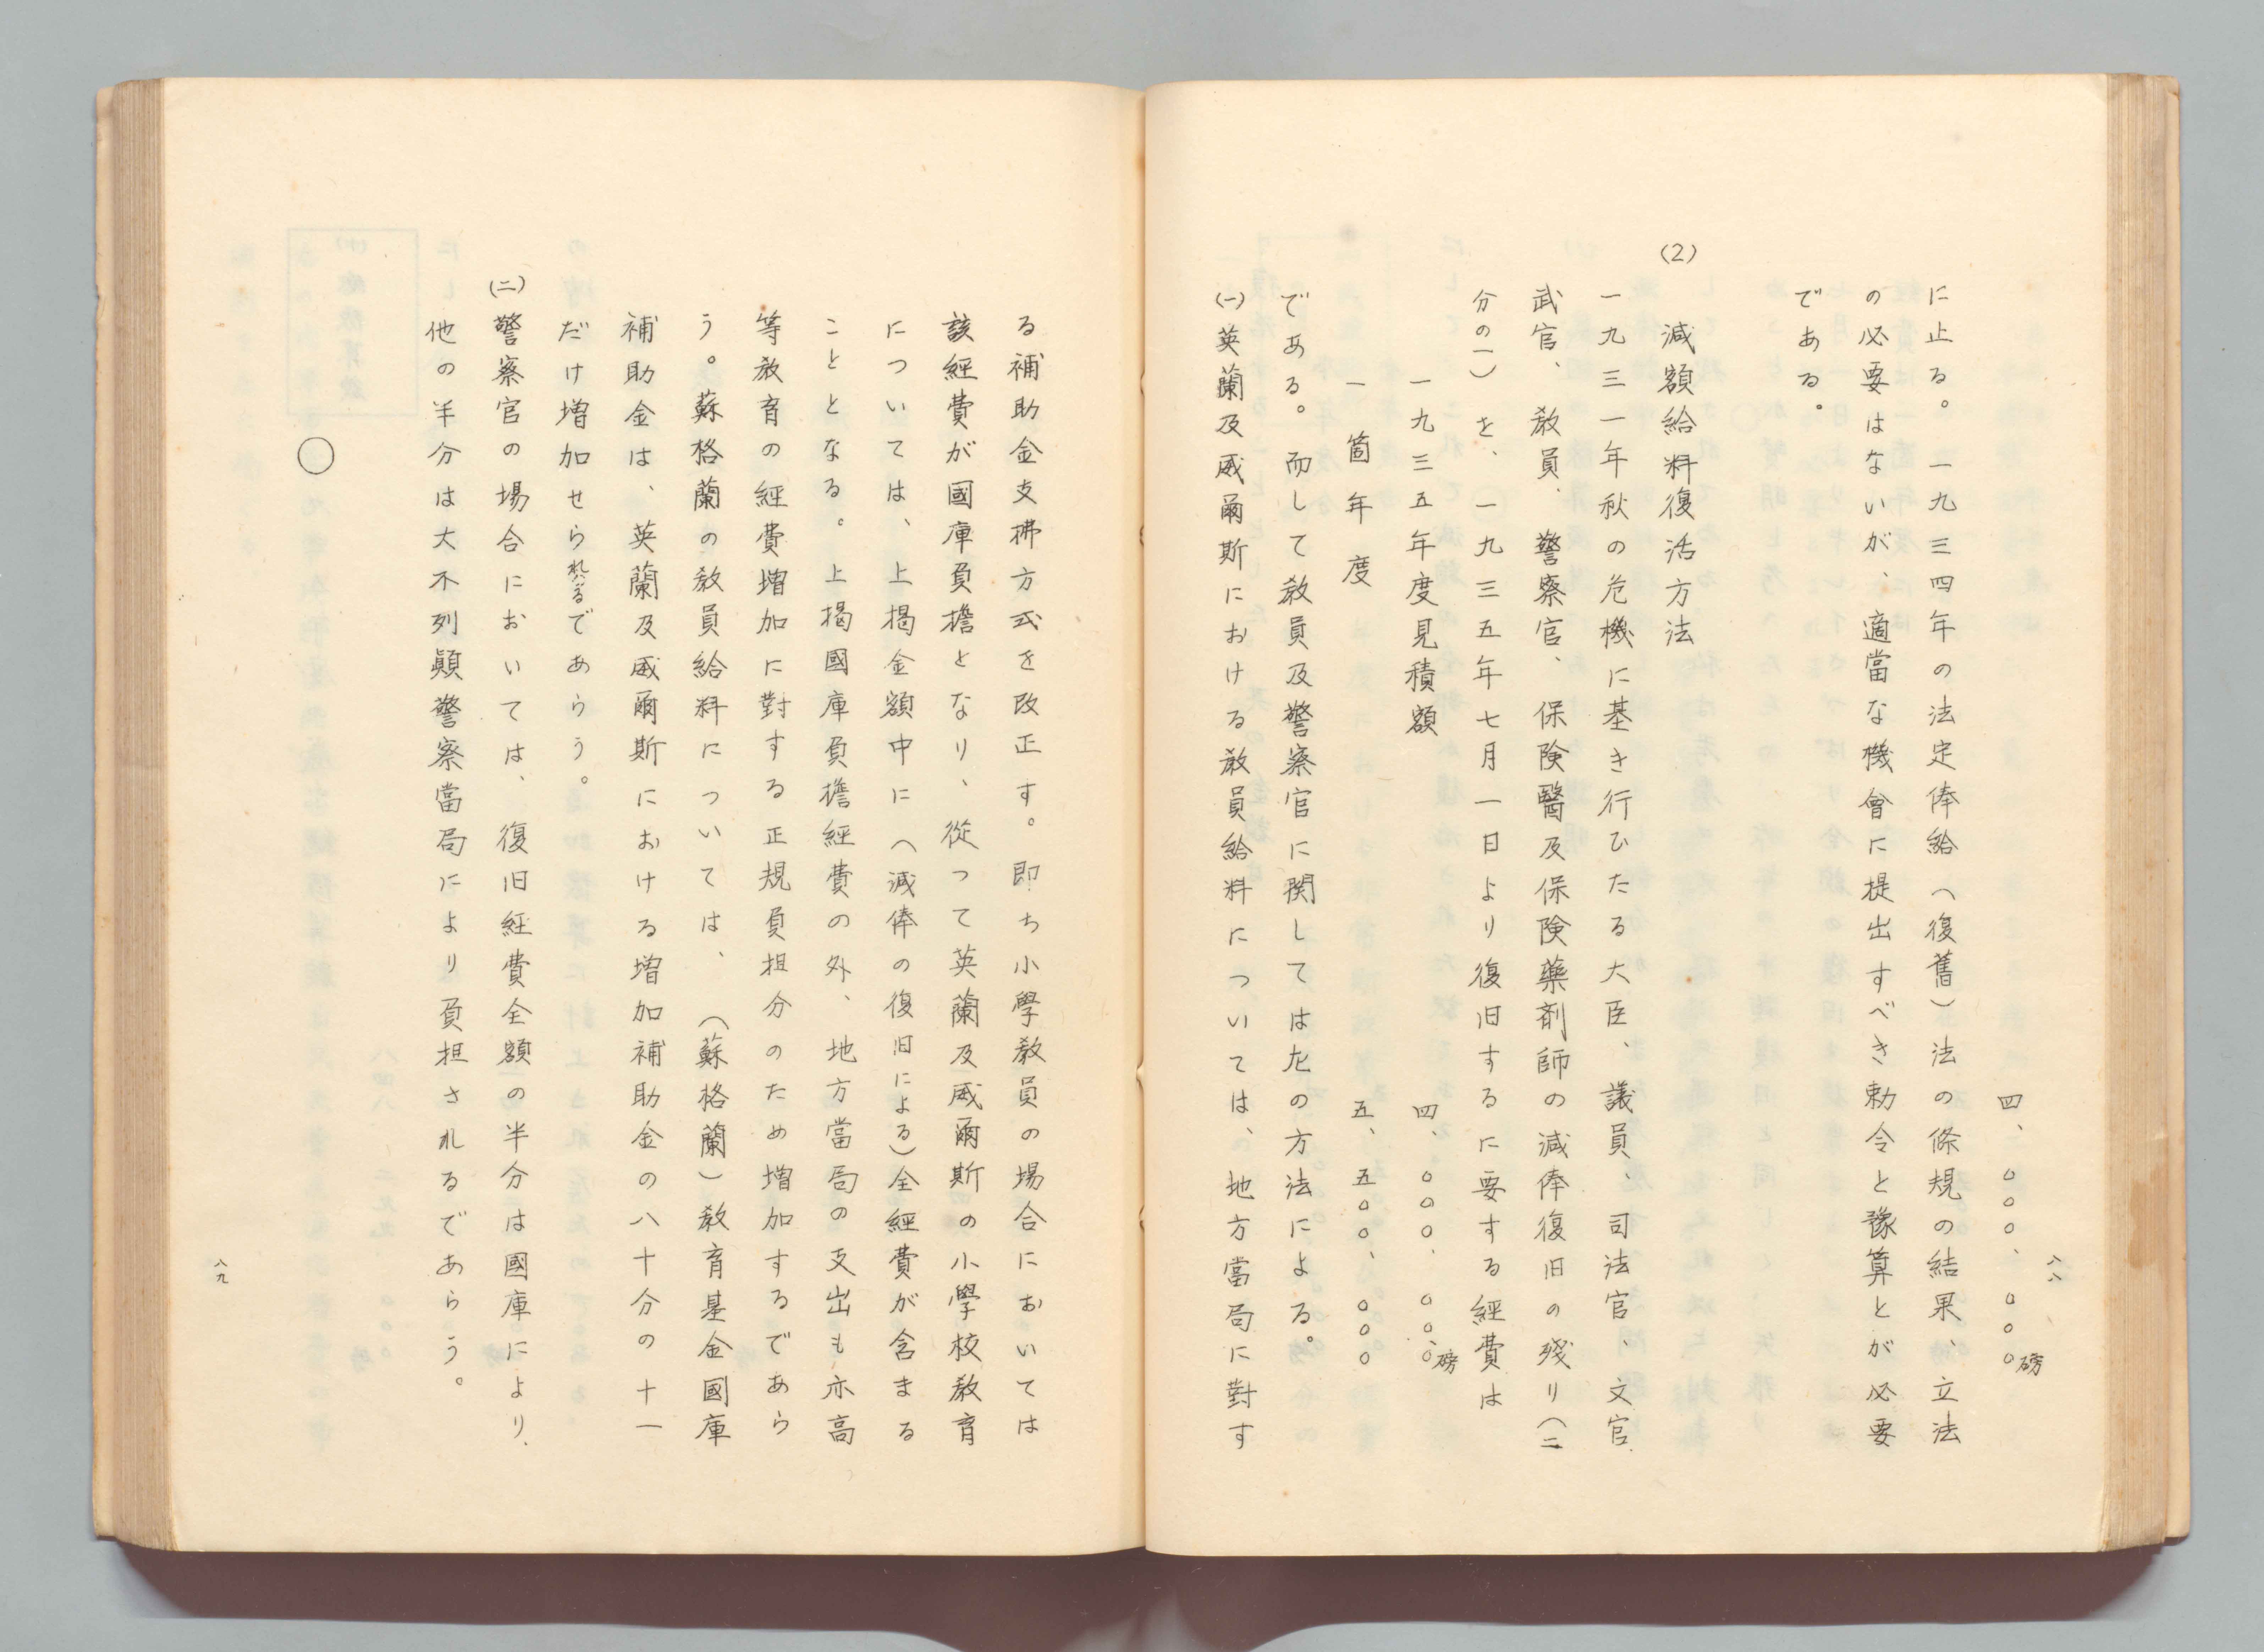 八八
四、〇〇〇、〇〇〇磅
に止る。一九三四年の法定俸給（復舊）法の條規の結果、立法
の必要はないが、適當な機會に提出すべき勅令と豫算とが必要
である。
(2) 減額給料復活方法
一九三一年秋の危機に基き行ひたる大臣、議員、司法官、文官
武官、教員、警察官、保険醫及保険藥剤師の減俸復旧の残り（二
分の一）を、一九三五年七月一日より復旧するに要する経費は
一九三五年度見積額 四、〇〇〇、〇〇〇磅
一箇年度 五、五〇〇、〇〇〇
である。而して教員及警察官に関しては左の方法による。
(一)英蘭及威爾斯における教員給料については、地方當局に對す
る補助金支拂方式を改正す。即ち小學教員の場合においては
該經費が國庫負擔となり、從つて英蘭及威爾斯の小學校教育
については、上掲金額中に（減俸の復旧による）全經費が含まる
こととなる。上掲國庫負擔經費の外、地方當局の支出も亦高
等教育の經費増加に對する正規負担分のため増加するであら
う。蘇格蘭の教員給料については、（蘇格蘭）教育基金國庫
補助金は、英蘭及威爾斯における増加補助金の八十分の十一
だけ増加せらるるであらう。
(二)警察官の場合においては、復旧経費全額の半分は國庫により、
他の半分は大不列顛警察當局により負担されるであらう。
〇
八九